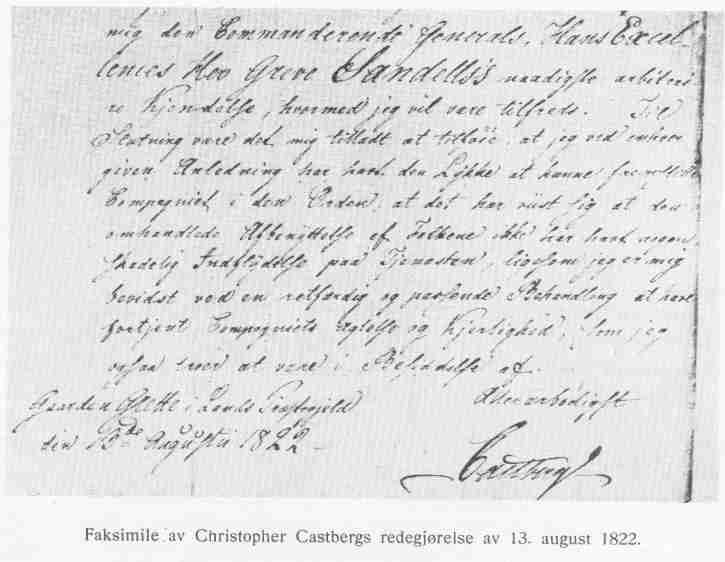 mig den Commanderende Generals, Hans Excel-
lences Herr Greve Sandells's naadigste arbitrai-
re Kjendelse, hvormed jeg vil være tilfreds. Til
Slutning være det mig tilladt at tilføie, at jeg ved enhver
given Anledning har havt den Lykke at kunne fremstille
Compagniet i den Orden, at det har viist sig at den
omhandlede Afbenyttelse af Folkene ikke har havt nogen
skadelig Indflydelse paa Tjenesten, ligesom jeg er mig
bevidst ved en retfærdig og passende Behandling at have
fortjent Compagniets Agtelse og Kjerlighed, som jeg
ogsaa troer at være i Besiddelse af.
Gaarden i Lands Præstegield
Allerærbødigst
den 13de Augustii 1822
Castberg
Faksimile av Christopher Castbergs redegjørelse av 13. august 1822.